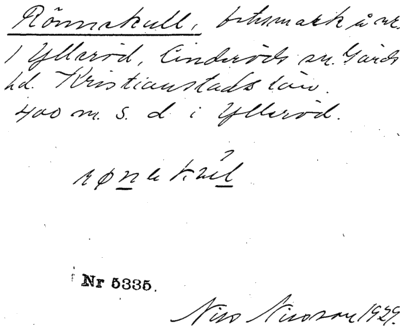 Rönnekull, betesmark å nr.
1 Ylleröd, Linderöds sn. Gärds
hd. Kristianstads län.
400 m. s. d. i Ylleröd.
Nr 5335.
Nils Nilsson 1929.